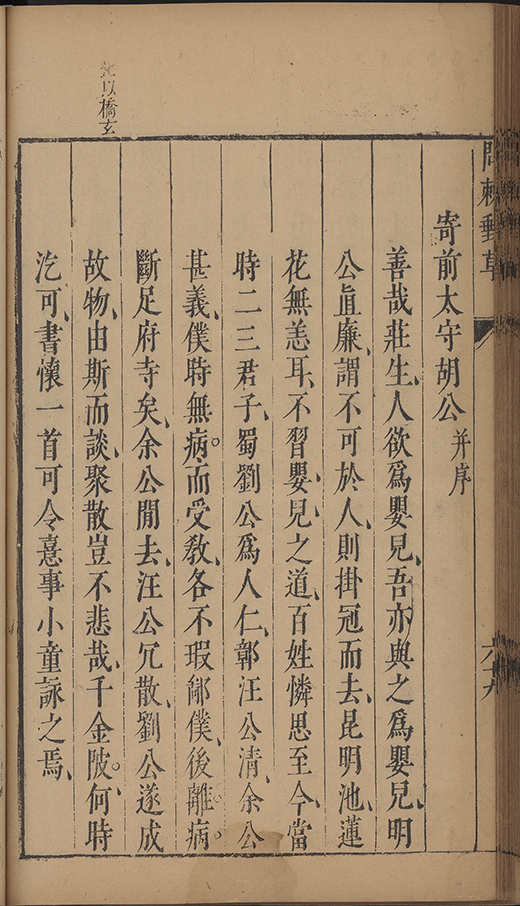 問棘郵草
寄前太守胡公 并序
善哉莊生、人欲爲嬰兒、吾亦與之爲嬰兒、明
公眞廉、謂不可於人、則掛冠而去、昆明池、蓮
花無恙耳、不習嬰兒之道、百姓憐思至今、當
時二三君子、蜀劉公爲人仁、鄣汪公清、余公
甚義、僕時無病。而受敎、各不瑕鄙僕、後離病。
斷足府寺矣、余公閒去、汪公冗散、劉公遂成
故物、由斯而談、聚散豈不悲哉、千金陂。何時
汔可、書懷一首可令憙事小童詠之焉、
以橋玄